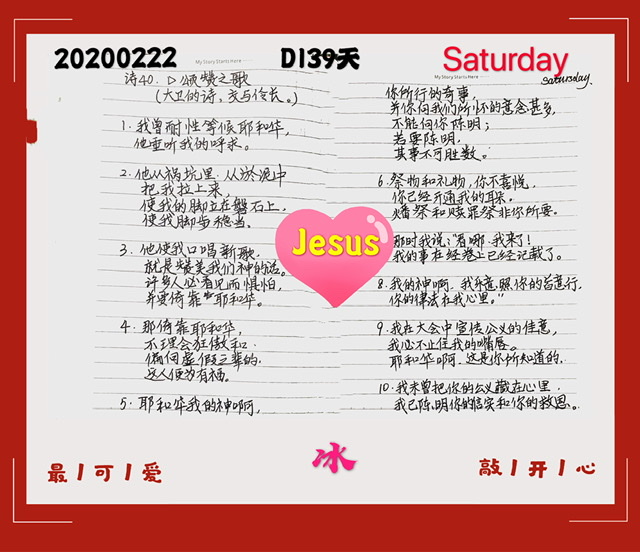 20200222
D139天
Saturday
My Story Starts Here
诗40. ▷颂赞之歌
(大卫的诗,交与伶长。)
1. 我曾耐性等候耶和华,
他垂听我的呼求。
2. 他从祸坑里.从淤泥中
把我拉上来,
使我的脚立在磐石上,
使我脚步稳当.
3. 他使我口唱新歌.
就是赞美我们神的话。
许多人必看见而惧怕,
并要倚靠耶和华。
4. 那倚靠耶和华,
不理会狂傲和
偏向虚假之辈的.
这人便为有福。
5. 耶和华我的神啊,
My Story Starts Here
Saturday.
你所行的奇事,
并你向我们所怀的意念甚多,
不能向你陈明;
若要陈明,
其事不可胜数.
6. 祭物和礼物,你不喜悦,
你已经开通我的耳朵.
燔祭和赎罪祭非你所要.
那时我说:"看哪.我来了!
我的事在经卷上已经记载了。
8. 我的神啊.我乐意照你的旨意行.
你的律法在我心里。"
9. 我在大会中宣传公义的佳音,
我必不止住我的嘴唇.
耶和华啊.这是你所知道的.
10. 我未曾把你的公义藏在心里.
我已陈明你的信实和你的救恩。
Jesus
冰
最|可|爱
敲|开|心